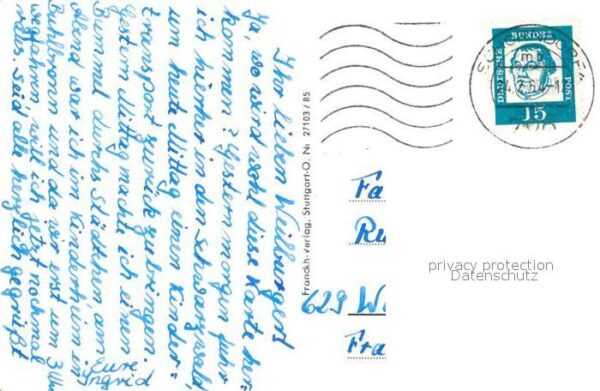 Ihr lieben Weilburger!
Ja, wo wird wohl diese Karte her-
kommen? Gestern morgen fuhr
ich hierher in den Schwarzwald,
um heute Mittag einen Kinder-
transport zurück zu bringen.
Gestern Mittag machte ich einen
Bummel durchs Städtchen am
Abend war ich im Kinderheim in
und da wir erst um 3 Uhr
wegfahren will ich jetzt nochmal
seid alle herzlich gegrüßt
Eure
Ingrid
Franckh-Verlag, Stuttgart-O. Nr. 27103/85
DEUTSCHE BUNDESPOST
15
Fa
Ru
629 We
Fra
privacy protection
Datenschutz